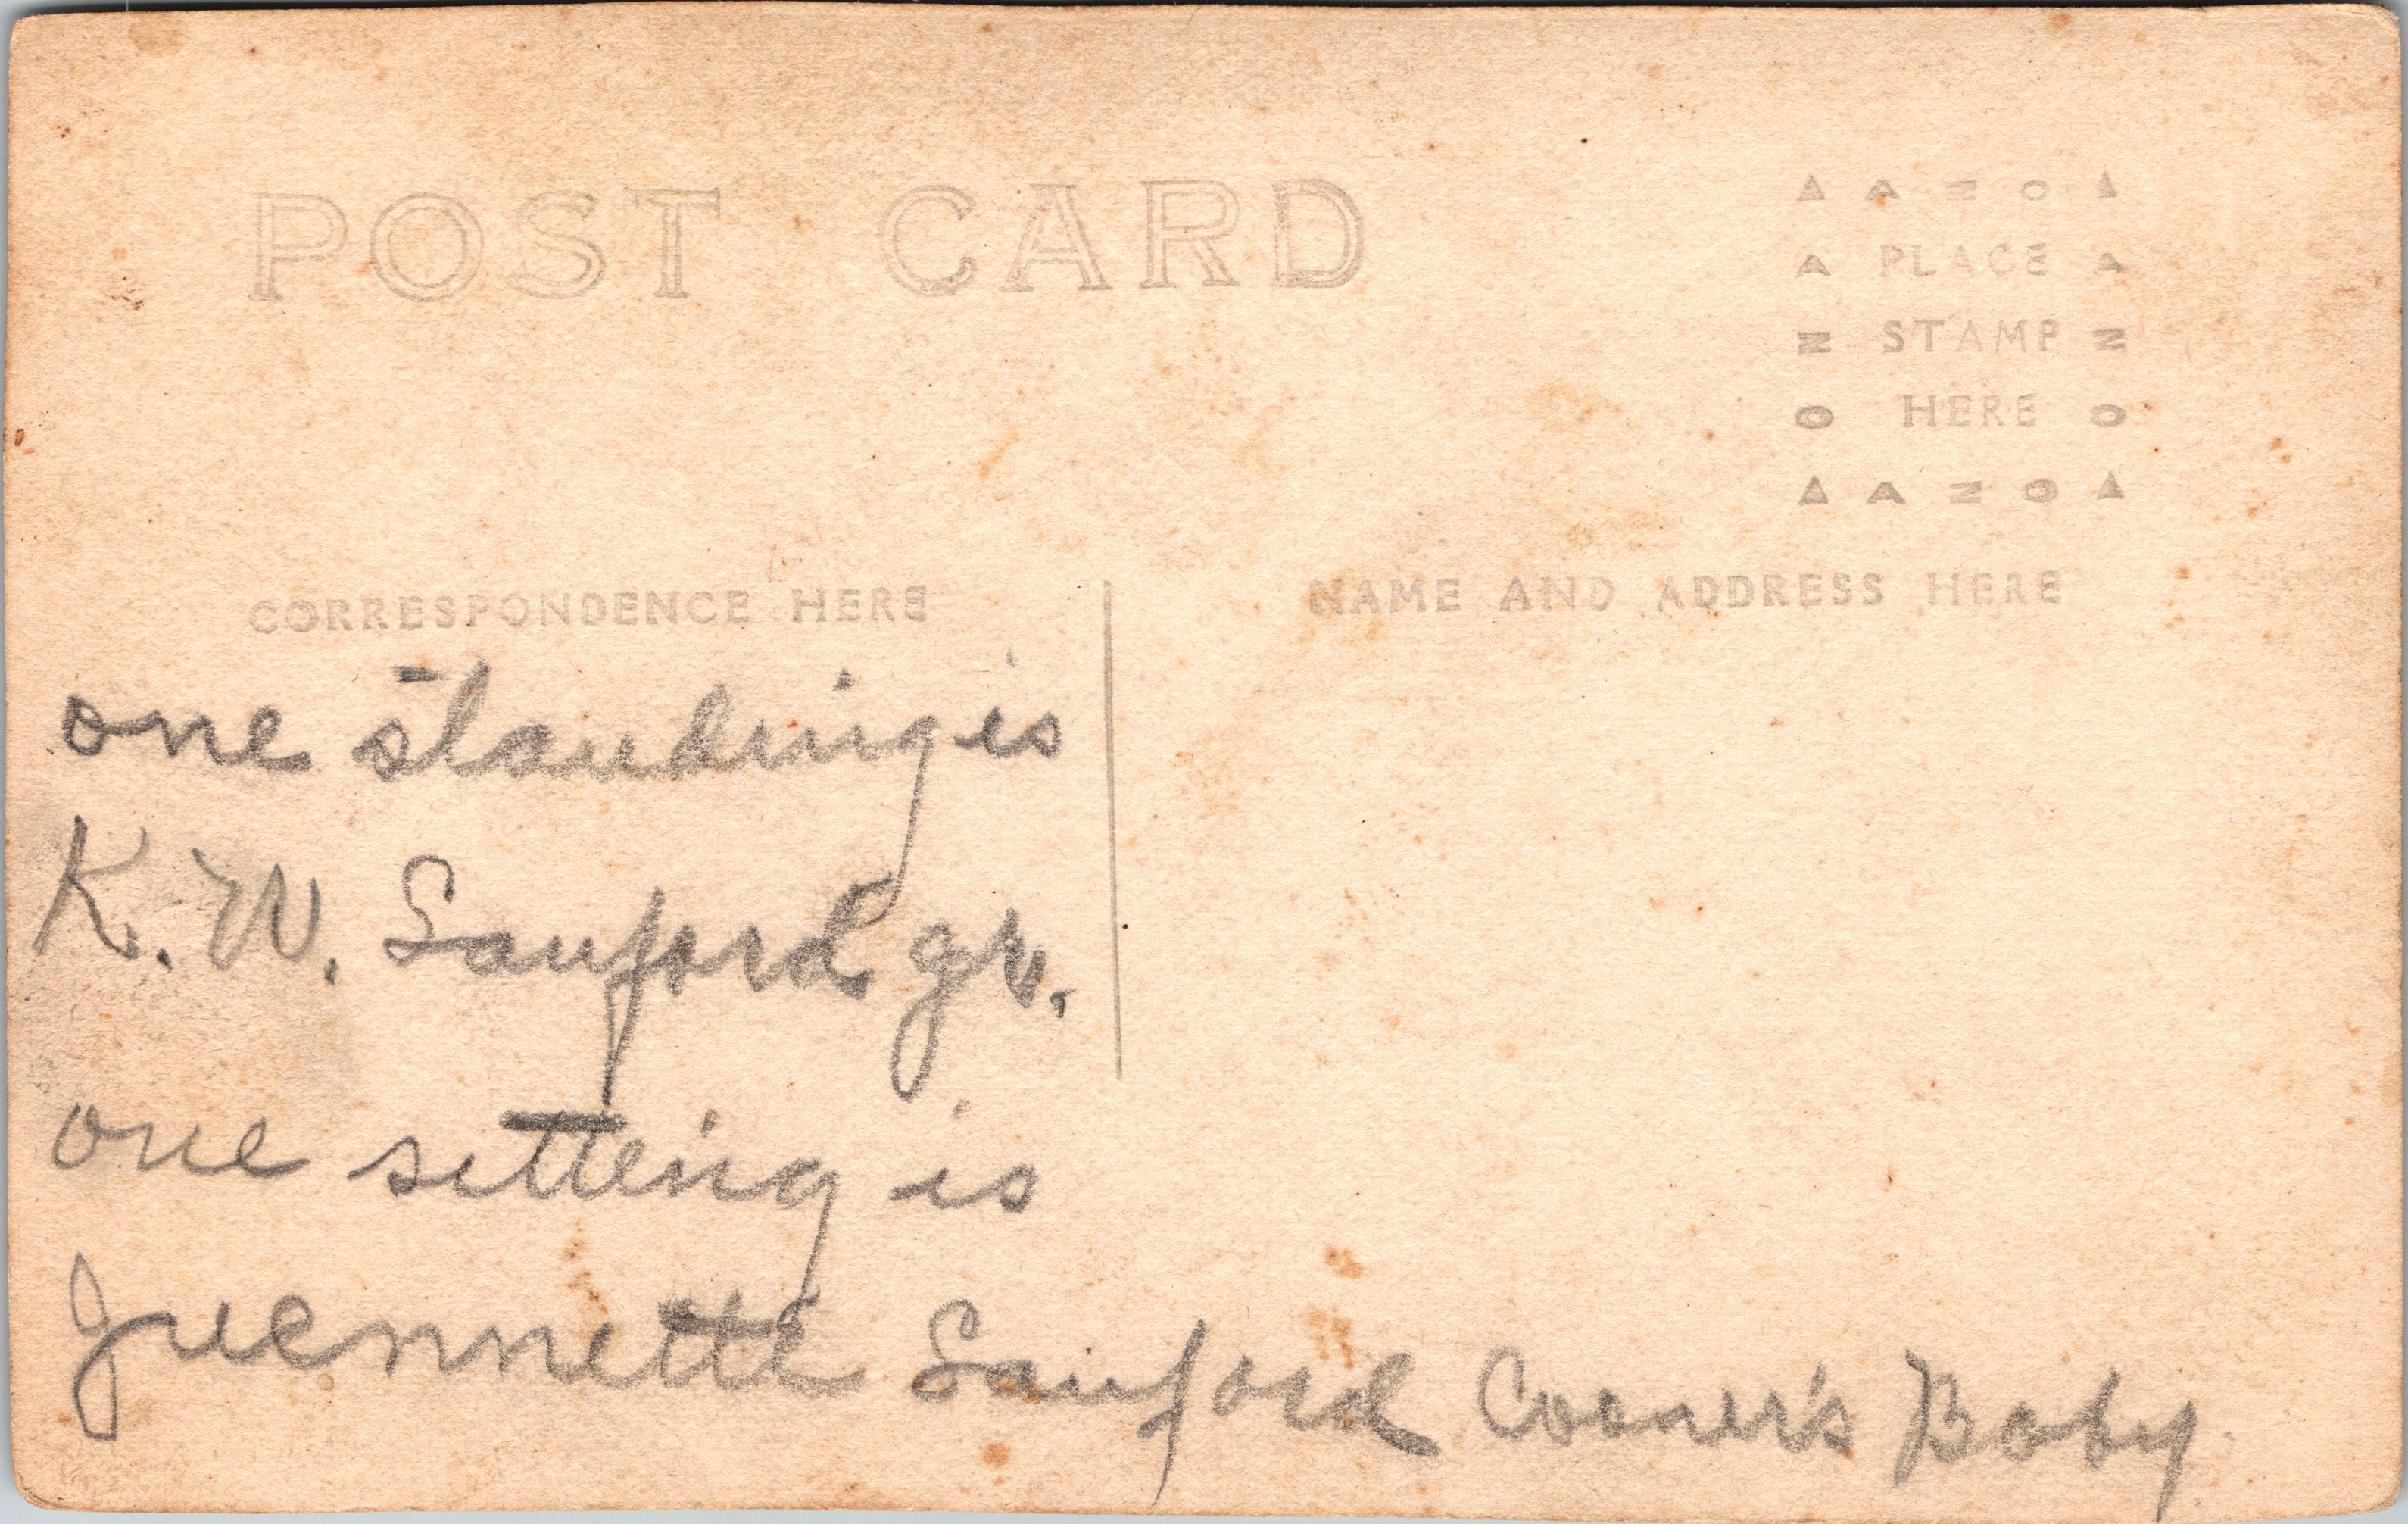 POST CARD
▲ A Z O ▲
A PLACE A
Z STAMP Z
O HERE O
▲ A Z O ▲
CORRESPONDENCE HERE
NAME AND ADDRESS HERE
one standing is
K. W. Sanford Jr.
one setting is
Juennette Sanford Cooner's Baby